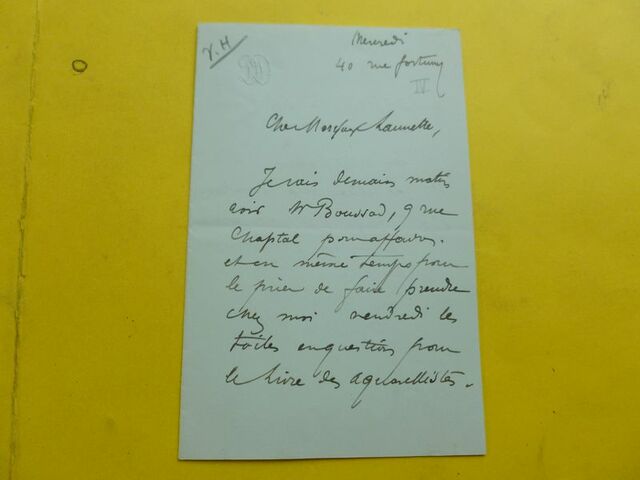 V. H
Mercredi
40 rue Fortuny
IV
Cher Monsieur Launette,
Je vais demain matin
voir Mr Boussod, 9 rue
Chaptal pour affaires.
et en même temps pour
le prier de faire prendre
chez moi vendredi les
toiles en question pour
le Livre des aquarellistes.